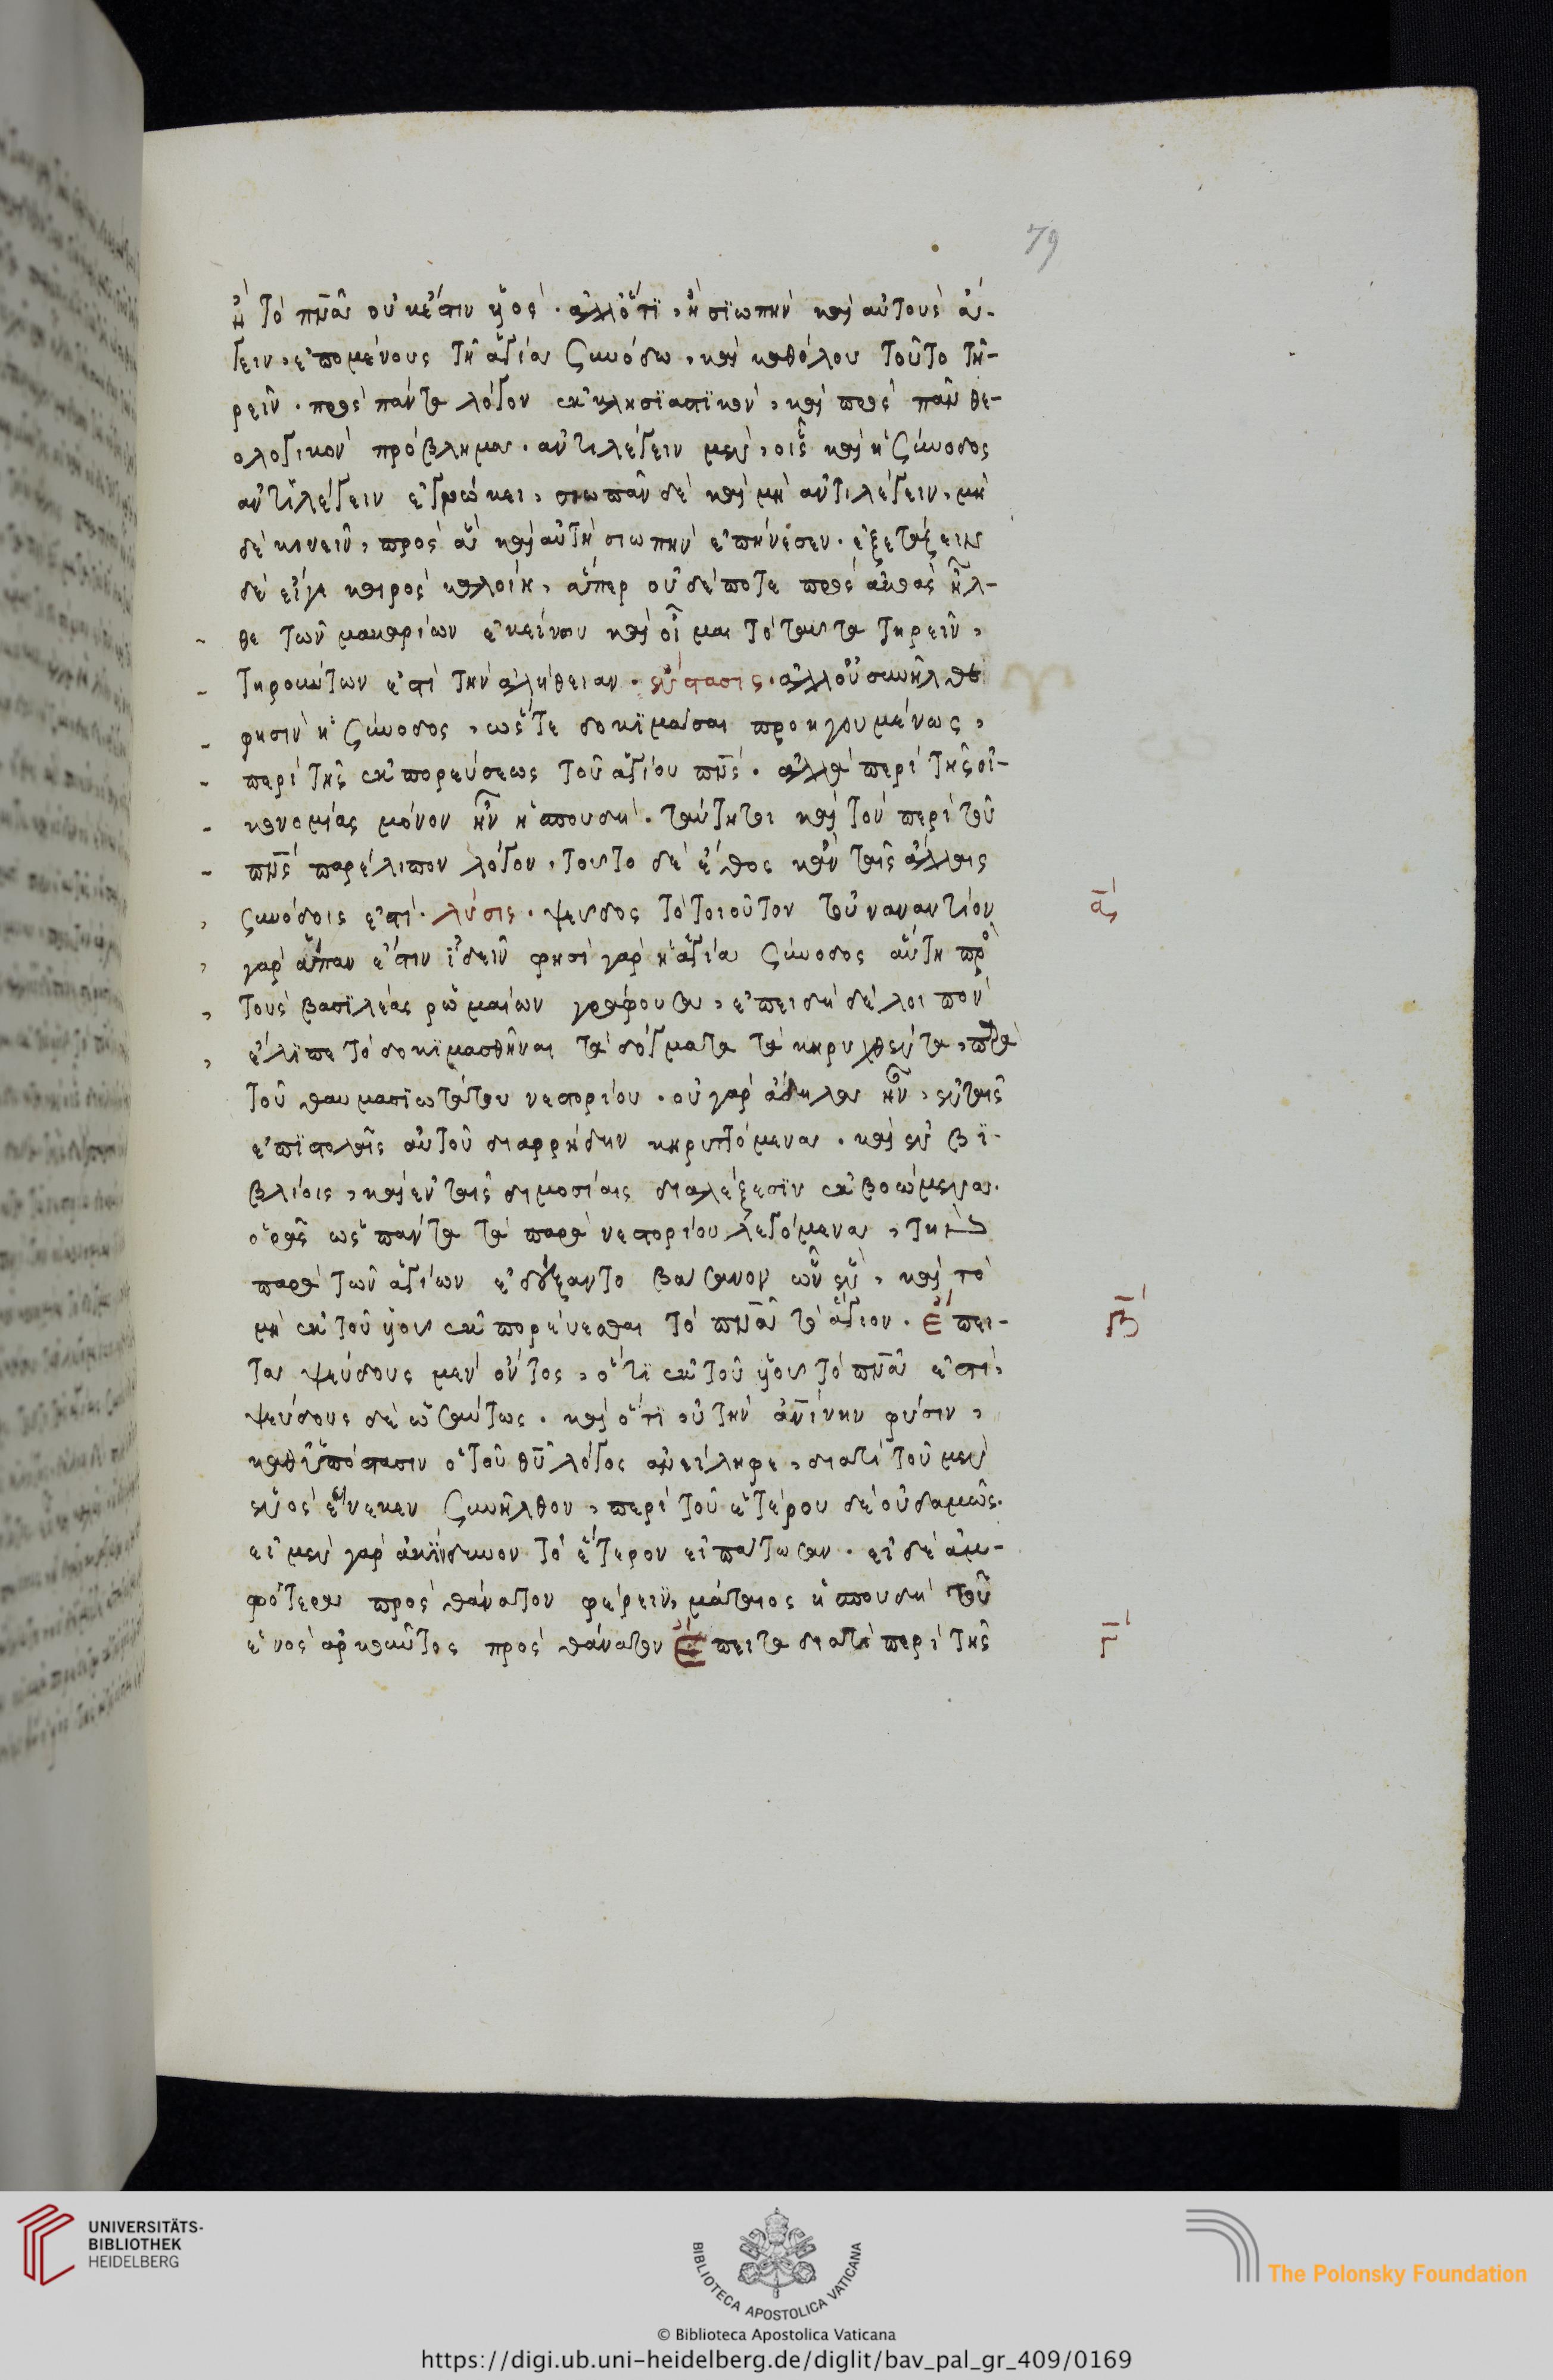 79
ἢ τὸ πν̅α οὐκέστιν υἱὸς. ἀλλ᾽ ὅτι, ἡ σιωπὴν καὶ αὐτοὺς ἄ-
γειν. ἑπομένους τῆ ἁγία συνόδω, καὶ καθόλου τοῦτο τη-
ρεῖν. πρὸς πάντα λόγον ἐκκλησιαστικὸν, καὶ πρὸς πᾶν θε-
ολογικὸν πρόβλημα. ἀντιλέγειν μὲν, οἷς καὶ ἡ σύνοδος
ἀντιλέγειν ἐγνώκει, σιωπᾶν δὲ καὶ μὴ ἀντιλέγειν, μὴ
δὲ κινεῖν, πρὸς ἃ καὶ αὐτὴ σιωπὴν ἐπήνεσεν. ἐξετάζειν
δὲ εἴγε καιρὸς καλοίη, ἅπερ οὐδέποτε πρὸς ἀκοὰς ἦλ-
θε τῶν μακαρίων ἐκείνων καὶ οἶμαι τὸ ταῦτα τηρεῖν,
τηρούντων ἐστὶ τὴν ἀλήθειαν. ἔνστασις. ἀλλ᾽ οὐ συνῆλθε
φησὶν ἡ σύνοδος, ὥστε δοκιμάσαι προηγουμένως,
περὶ τῆς ἐκπορεύσεως τοῦ ἁγίου πν̅ς. ἀλλὰ περὶ τῆς οἰ-
κονομίας μόνον ἦν ἡ σπουδὴ. ταύτητοι καὶ τὸν περὶ τοῦ
πν̅ς παρέλιπον λόγον. τοῦτο δὲ ἔθος κἀν ταῖς ἄλλαις
συνόδοις ἐστὶ. λύσις. ψεῦδος τὸ τοιοῦτον τοὐναντίον
α̅
γὰρ ἅπαν ἔστιν ἰδεῖν φησὶ γὰρ ἡ ἁγία σύνοδος αὕτη πρὸ
τοὺς βασιλέας ῥωμαίων γράφουσα, ἐπειδὴ δὲ λοιπὸν
ἔλιπε τὸ δοκιμασθῆναι τὰ δόγματα τὰ κηρυχθέντα, παρὰ
τοῦ θαυμασιωτάτου νεστορίου. οὐ γὰρ ἄδηλα ἦν, ἐν ταῖς
ἐπιστολαῖς αὐτοῦ διαρρήδην κηρυττόμενα. καὶ ἐν βι-
βλίοις, καὶ ἐν ταῖς δημοσίαις διαλέξεσιν ἐκβοώμενα.
ὁρᾶς ὡς πάντα τὰ παρὰ νεστορίου λεγόμενα, τὴν
παρὰ τῶν ἁγίων ἐδέξαντο βάσανον ὧν ἓν, καὶ τὸ
μὴ ἐκ τοῦ υἱοῦ ἐκπορεύεσθαι τὸ πν̅α τὸ ἅγιον. ἔπει-
β̅
τα ψεύδους μὲν ὄντος, ὅτι ἐκ τοῦ υἱοῦ τὸ πν̅α ἐστὶ,
ψεύδους δὲ ὡσαύτως. καὶ ὅτι οὐ τὴν ἀν̅ίνην φύσιν,
καθ᾽ ὑπόστασιν ὁ τοῦ θ̅υ λόγος ἀνείληφε, διατί τοῦ μὲν
ἑνὸς ἕνεκεν συνῆλθον, περὶ τοῦ ἑτέρου δὲ οὐδαμῶς.
εἰ μὲν γὰρ ἀκίνδυνον τὸ ἕτερον εἰπάτωσαν. εἰ δὲ ἀμ-
φότερα πρὸς θάνατον φέρειν, μάταιος ἡ σπουδὴ τοῦ
ἑνὸς ἀρκοῦντος πρὸς θάνατον Ἔπειτα διατί περὶ τῆς
γ̅
UNIVERSITÄTS-
BIBLIOTHEK
HEIDELBERG
BIBLIOTECA APOSTOLICA VATICANA
The Polonsky Foundation
© Biblioteca Apostolica Vaticana
https://digi.ub.uni-heidelberg.de/diglit/bav_pal_gr_409/0169